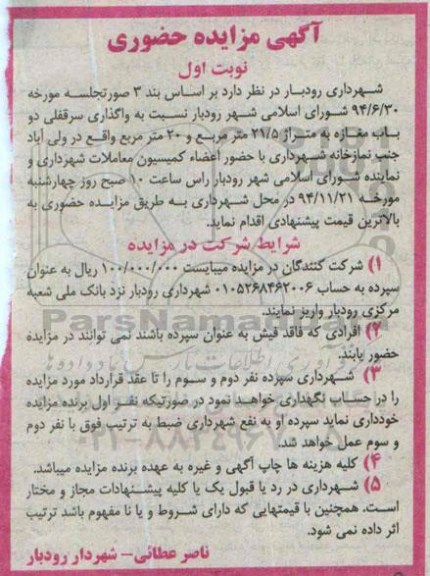 آگهی مزایده حضوری
نوبت اول
شهرداری رودبار در نظر دارد بر اساس بند ۳ صورتجلسه مورخه
۹۴/۶/۳۰ شورای اسلامی شهر رودبار نسبت به واگذاری سرقفلی دو
باب مغازه به متراژ ۲۱/۵ متر مربع و ۲۰ متر مربع واقع در ولی آباد
جنب نمازخانه شهرداری با حضور اعضاء کمیسیون معاملات شهرداری و
نماینده شورای اسلامی شهر رودبار راس ساعت ۱۰ صبح روز چهارشنبه
مورخه ۹۴/۱۱/۲۱ در محل شهرداری به طریق مزایده حضوری به
بالاترین قیمت پیشنهادی اقدام نماید.
شرایط شرکت در مزایده
۱) شرکت کنندگان در مزایده میبایست ۱۰۰/۰۰۰/۰۰۰ ریال به عنوان
سپرده به حساب ۰۱۰۵۲۶۸۴۶۲۰۰۶ شهرداری رودبار نزد بانک ملی شعبه
مرکزی رودبار واریز نمایند.
ParsNamad
۲) افرادی که فاقد فیش به عنوان سپرده باشند نمی توانند در مزایده
حضور یابند.
۳) شهرداری سپرده نفر دوم و سوم را تا عقد قرارداد مورد مزایده
را در حساب نگهداری خواهد نمود در صورتیکه نفر اول برنده مزایده
خودداری نماید سپرده او به نفع شهرداری ضبط به ترتیب فوق با نفر دوم
و سوم عمل خواهد شد.
۴) کلیه هزینه ها چاپ آگهی و غیره به عهده برنده مزایده میباشد.
۵) شهرداری در رد یا قبول یک یا کلیه پیشنهادات مجاز و مختار
است. همچنین با قیمتهایی که دارای شروط و یا نا مفهوم باشد ترتیب
اثر داده نمی شود.
ناصر عطائی- شهردار رودبار